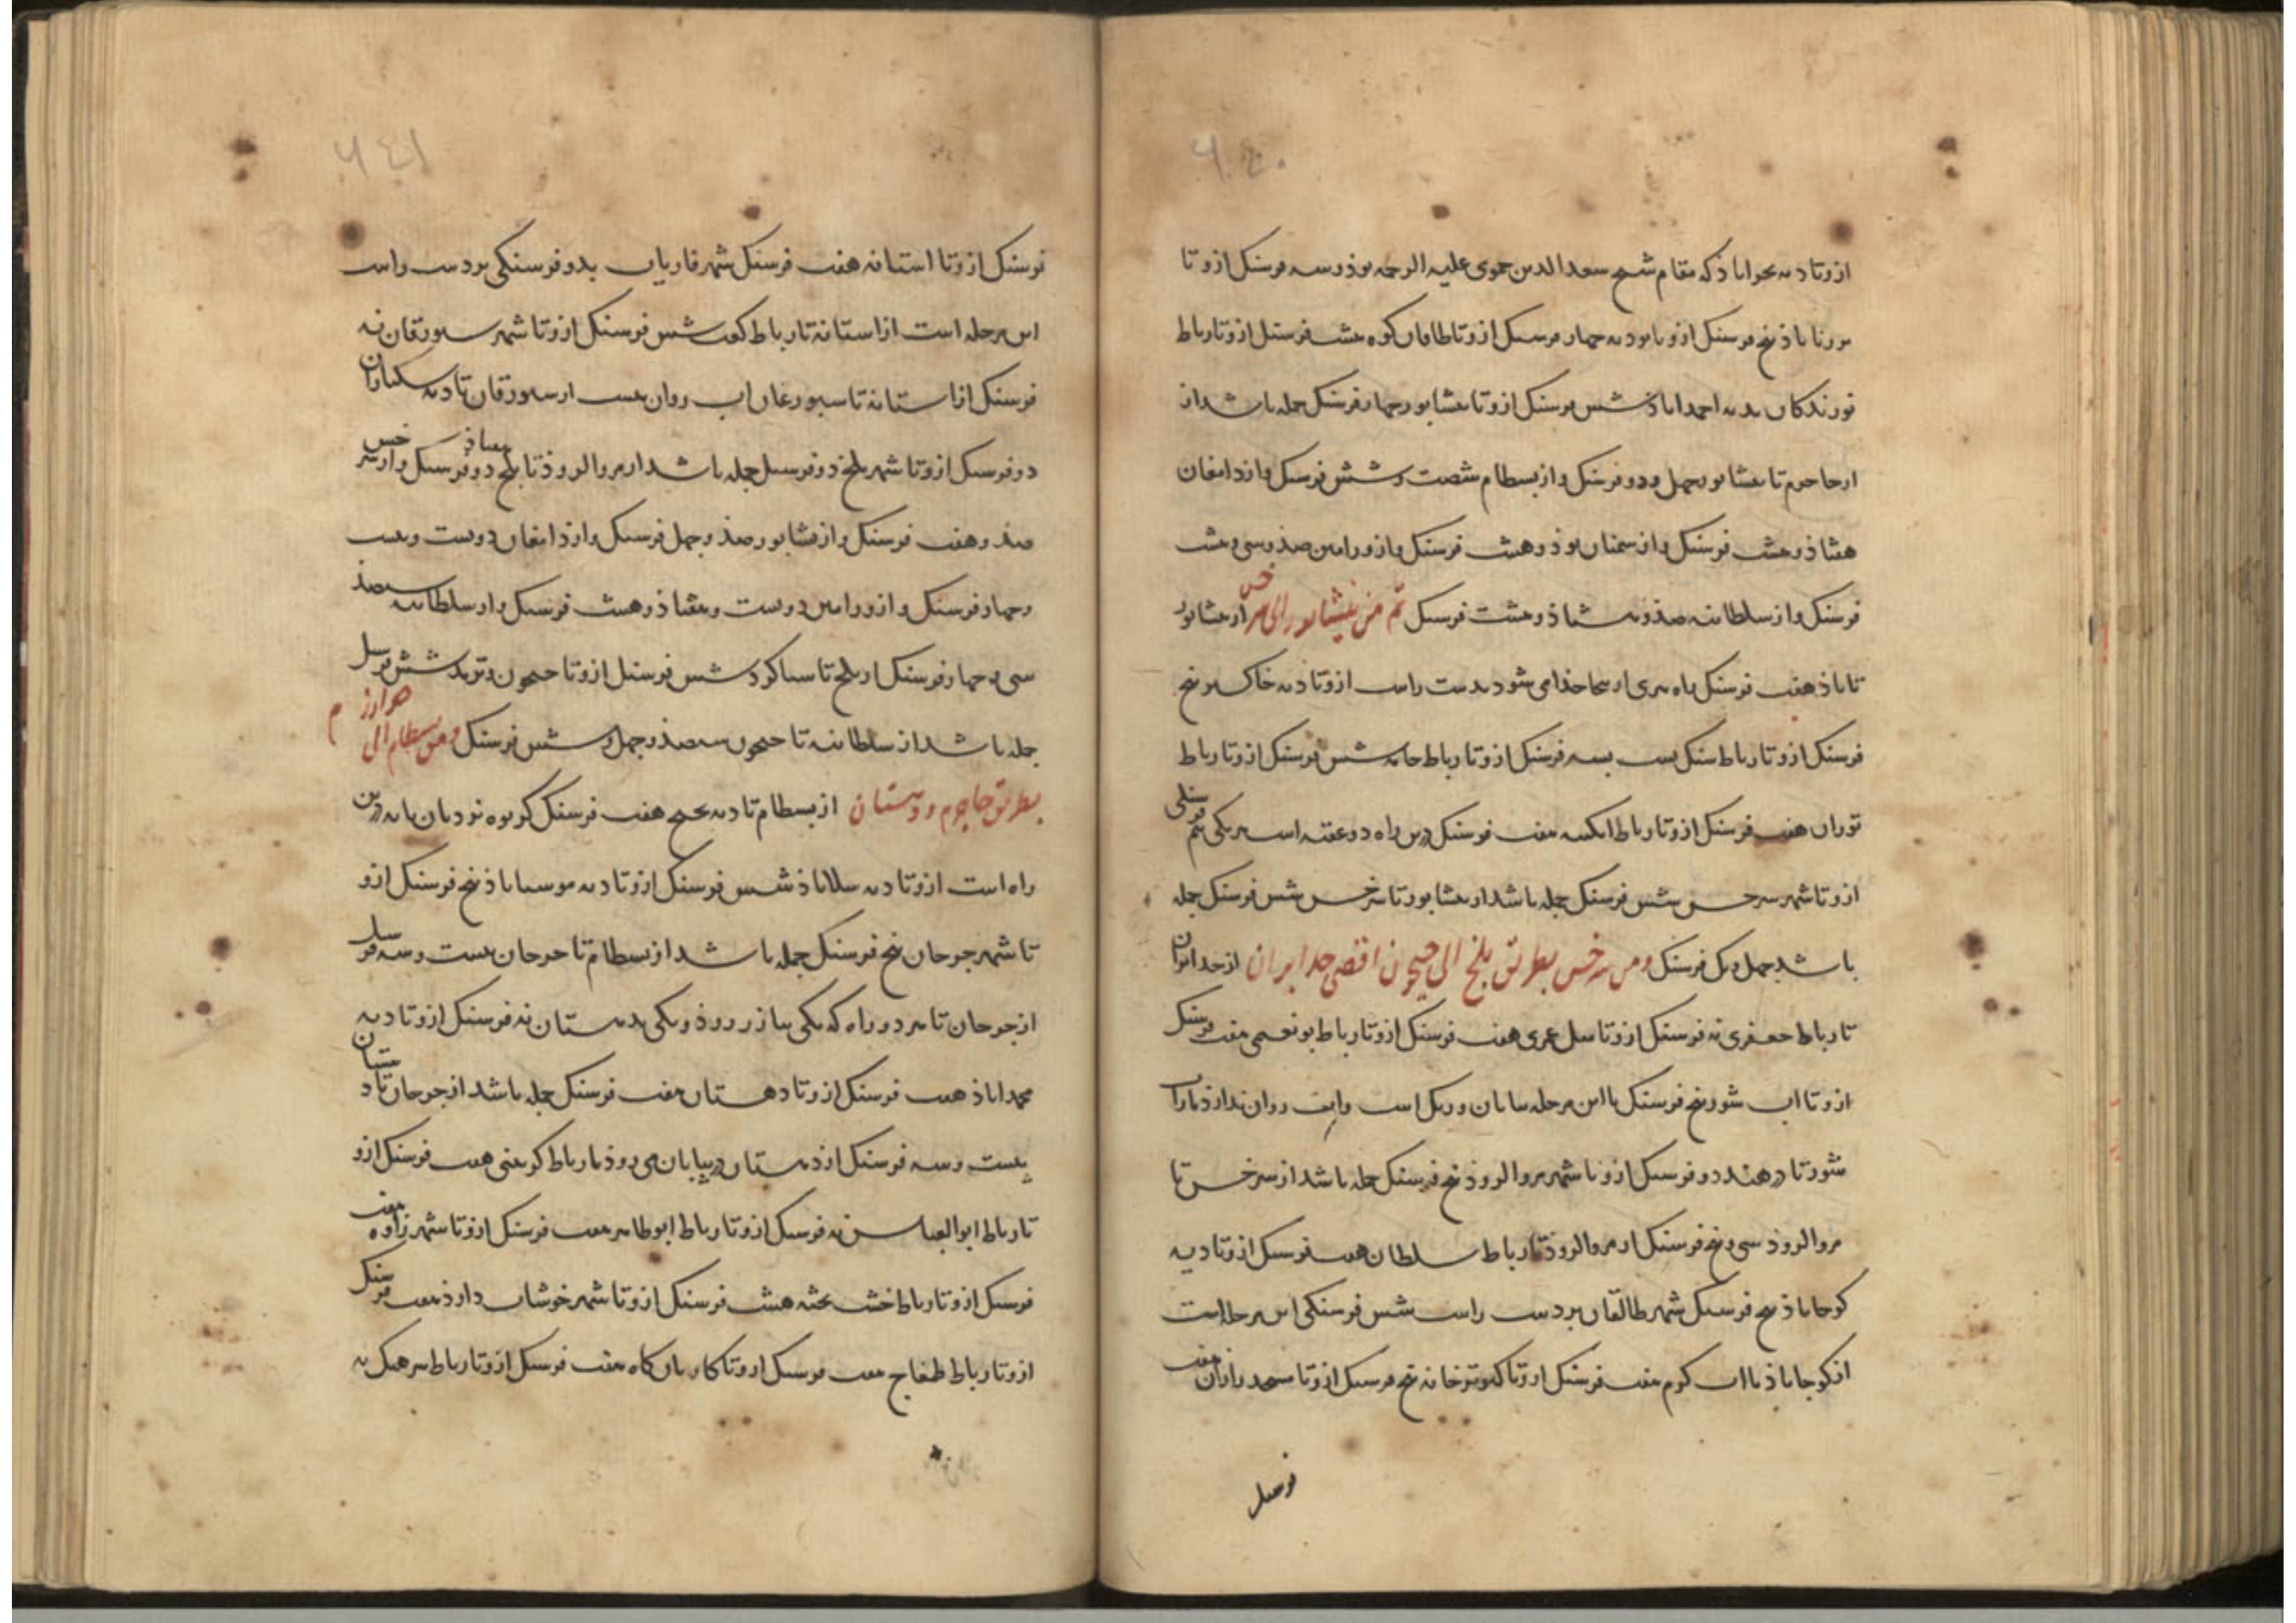 ٦٤٠
ازو تا دیه بحراباذ که مقام شیخ سعد الدین حموی علیه الرحمه بوذ و سه فرسنک ازو تا
پنج فرسنک ازو تا نوده جهار فرسنک ازو تا طاقان کوه هشت فرسنک ازو تا رباط
بدیه احمداباذ شش فرسنک ازو تا نیشابور جهار فرسنک جمله باشد از
ارجاجرم تا نیشابور جهل و دو فرسنک و از بسطام شصت و شش فرسنک و از دامغان
هشتاذ و هشت فرسنک و از سمنان نوذ و هشت فرسنک و از ورامین صذ و سی و هشت
فرسنک و از سلطانیه صذ و هشتاذ و هشت فرسنک ثم من نیشابور الی سرخس از نیشابور
تا باذ هفت فرسنک راه هری از ینجا جذا می شود بدست راست ازو تا دیه خاکستر پنج
فرسنک ازو تا رباط سنک بست بسه فرسنک ازو تا رباط ماهی شش فرسنک ازو تا رباط
توران هفت فرسنک ازو تا رباط ابکینه هفت فرسنک درین راه دو عقبه است هر یکی نیم فرسنکی
ازو تا شهر سرخس شش فرسنک جمله باشد از نیشابور تا سرخس شش فرسنک جمله
باشد جهل و یک فرسنک ومن سرخس بطریق بلخ الی جیحون اقصی حد ایران از حد ایران
تا رباط جعفری نه فرسنک ازو تا میل عمری هفت فرسنک ازو تا رباط بونعیمی هفت فرسنک
ازو تا اب شور پنج فرسنک تا این مرحله بیابان و ریک است و ابی روان ندارذ و از اب
شور تا دزهند دو فرسنک ازو تا شهر مروالروذ پنج فرسنک جمله باشد از سرخس تا
مروالروذ سی و پنج فرسنک از مروالروذ تا رباط سلطان هفت فرسنک ازو تا دیه
کوجاباذ پنج فرسنک شهر طالقان بر دست راست شش فرسنکی این مرحله است
از کوجاباذ تا اب کرم هفت فرسنک ازو تا کبوترخانه پنج فرسنک ازو تا مسجد رازان هفت
فرسنک
٦٤١
فرسنک ازو تا استانه هفت فرسنک شهر فاریاب بدو فرسنکی بر دست راست
این مرحله است از استانه تا رباط کعب شش فرسنک ازو تا شهر سبورقان نه
فرسنک از استانه تا سبورغان اب روان نیست از سبورقان تا دیه
دو فرسنک ازو تا شهر بلخ دو فرسنک جمله باشد از مروالروذ تا بلخ دو فرسنک و از سرخس
صذ و هفت فرسنک و از نیشابور صذ و جهل فرسنک و از دامغان دویست و بیست
و جهار فرسنک و از ورامین دویست و هفتاذ و هشت فرسنک و از سلطانیه سیصذ
سی و جهار فرسنک از بلخ تا سیاکرد شش فرسنک ازو تا جیحون و ترمد شش فرسنک
جمله باشد از سلطانیه تا جیحون سیصذ و جهل و شش فرسنک ومن بسطام الی خوارزم
بطریق جاجرم و دهستان از بسطام تا دیه هفت فرسنک کریوه نردبان پایه درین
راه است ازو تا دیه میلاباذ شش فرسنک ازو تا دیه موسیاباذ پنج فرسنک ازو
تا شهر جرجان پنج فرسنک جمله باشد از بسطام تا جرجان بیست و سه فرسنک
از جرجان تا سر دو راه که یکی بباز رروذ و یکی بدهستان نه فرسنک ازو تا دیه
محمداباذ هفت فرسنک ازو تا دهستان هفت فرسنک جمله باشد از جرجان تا دهستان
بیست و سه فرسنک از دهستان در بیابان می روذ تا رباط کرمغنی هفت فرسنک ازو
تا رباط ابو العباس نه فرسنک ازو تا رباط ابوطاهر هفت فرسنک ازو تا شهر فراوه هفت
فرسنک ازو تا رباط خشت پخته هشت فرسنک ازو تا شهر خوشاب دارذ هفت فرسنک
ازو تا رباط طغماج هفت فرسنک ازو تا کاروان کاه هفت فرسنک ازو تا رباط سرهنک نه